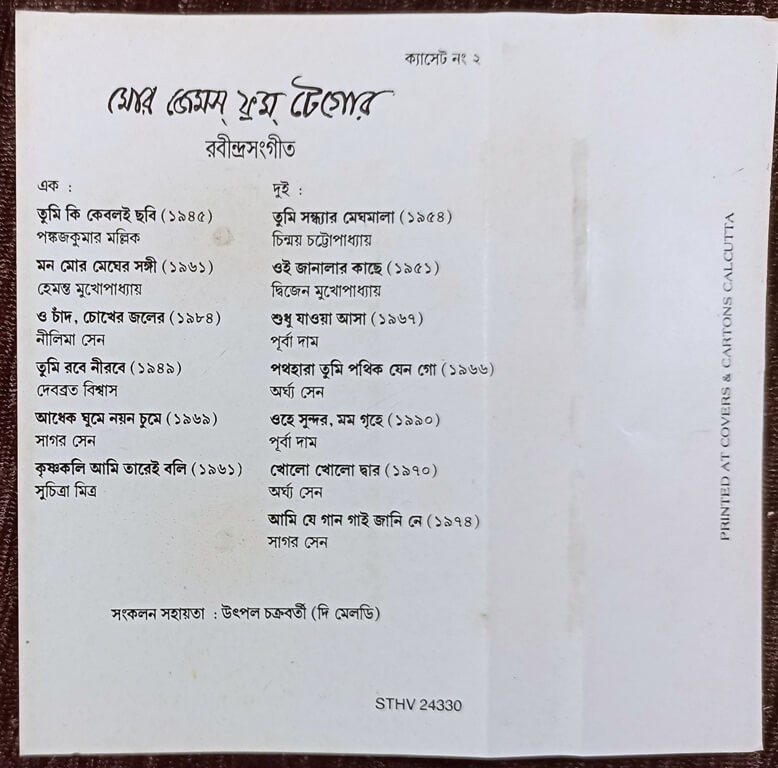 ক্যাসেট নং ২
মোর জেমস্ ফ্রম্ টেগোর
রবীন্দ্রসংগীত
এক :
তুমি কি কেবলই ছবি (১৯৪৫)
পঙ্কজকুমার মল্লিক
মন মোর মেঘের সঙ্গী (১৯৬১)
হেমন্ত মুখোপাধ্যায়
ও চাঁদ, চোখের জলের (১৯৮৪)
নীলিমা সেন
তুমি রবে নীরবে (১৯৪৯)
দেবব্রত বিশ্বাস
আধেক ঘুমে নয়ন চুমে (১৯৬৯)
সাগর সেন
কৃষ্ণকলি আমি তারেই বলি (১৯৬১)
সুচিত্রা মিত্র
দুই :
তুমি সন্ধ্যার মেঘমালা (১৯৫৪)
চিন্ময় চট্টোপাধ্যায়
ওই জানালার কাছে (১৯৫১)
দ্বিজেন মুখোপাধ্যায়
শুধু যাওয়া আসা (১৯৬৭)
পূর্বা দাম
পথহারা তুমি পথিক যেন গো (১৯৬৬)
অর্ঘ্য সেন
ওহে সুন্দর, মম গৃহে (১৯৯০)
পূর্বা দাম
খোলো খোলো দ্বার (১৯৭০)
অর্ঘ্য সেন
আমি যে গান গাই জানি নে (১৯৭৪)
সাগর সেন
সংকলন সহায়তা : উৎপল চক্রবর্তী (দি মেলডি)
STHV 24330
PRINTED AT COVERS & CARTONS CALCUTTA